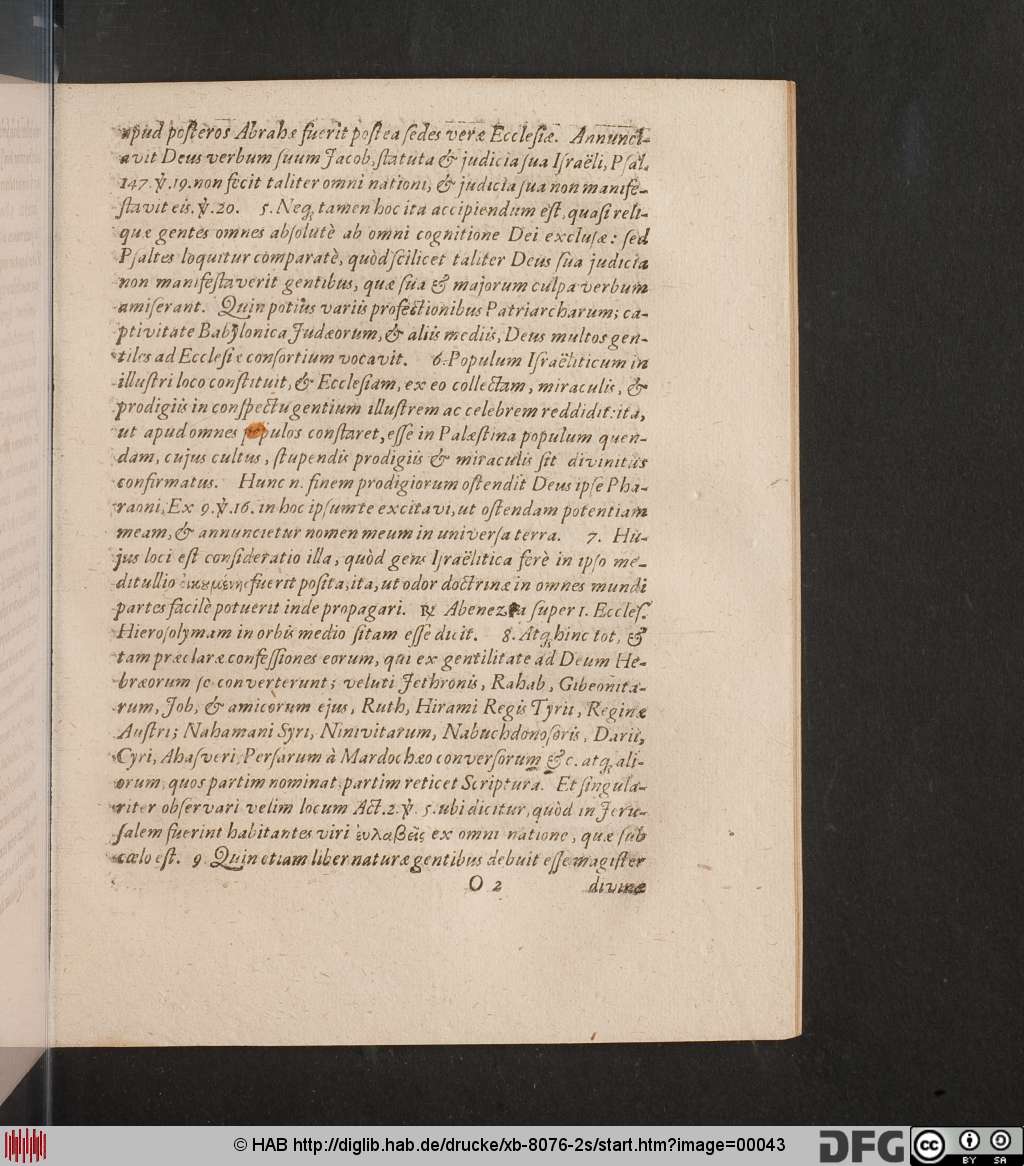 apud posteros Abrahæ fuerit postea sedes veræ Ecclesiæ. Annunci-
avit Deus verbum suum Jacob, statuta & judicia sua Israëli, Psal.
147. ℣. 19. non fecit taliter omni nationi, & judicia sua non manife-
stavit eis. ℣. 20. 5. Neq; tamen hoc ita accipiendum est, quasi reli-
quæ gentes omnes absolutè ab omni cognitione Dei exclusæ: sed
Psaltes loquitur comparatè, quòd scilicet taliter Deus sua judicia
non manifestaverit gentibus, quæ sua & majorum culpa verbum
amiserant. Quin potius variis profectionibus Patriarcharum; ca-
ptivitate Babylonica Judæorum, & aliis mediis, Deus multos gen-
tiles ad Ecclesiæ consortium vocavit. 6. Populum Israëliticum in
illustri loco constituit, & Ecclesiam, ex eo collectam, miraculis, &
prodigiis in conspectu gentium illustrem ac celebrem reddidit: ita,
ut apud omnes populos constaret, esse in Palæstina populum quen-
dam, cujus cultus, stupendis prodigiis & miraculis sit divinitus
confirmatus. Hunc n. finem prodigiorum ostendit Deus ipse Pha-
raoni, Ex 9. ℣. 16. in hoc ipsum te excitavi, ut ostendam potentiam
meam, & annuncietur nomen meum in universa terra. 7. Hu-
jus loci est consideratio illa, quòd gens Israëlitica ferè in ipso me-
ditullio οἰκουμένης fuerit posita, ita, ut odor doctrinæ in omnes mundi
partes facilè potuerit inde propagari. R. Abenezra super 1. Eccles.
Hierosolymam in orbis medio sitam esse dicit. 8. Atq; hinc tot, &
tam præclaræ confessiones eorum, qui ex gentilitate ad Deum He-
bræorum se converterunt; veluti Jethronis, Rahab, Gibeonita-
rum, Job, & amicorum ejus, Ruth, Hirami Regis Tyrii, Reginæ
Austri; Nahamani Syri, Ninivitarum, Nabuchdonosoris, Darii,
Cyri, Ahasveri, Persarum à Mardochæo conversorum &c. atq; ali-
orum, quos partim nominat, partim reticet Scriptura. Et singula-
riter observari velim locum Act. 2. ℣. 5. ubi dicitur, quòd in Jeru-
salem fuerint habitantes viri ἐυλαβεῖς ex omni natione, quæ sub
cœlo est. 9. Quin etiam liber naturæ gentibus debuit esse magister
O 2 divinæ
© HAB http://diglib.hab.de/drucke/xb-8076-2s/start.htm?image=00043
DFG
cc BY SA